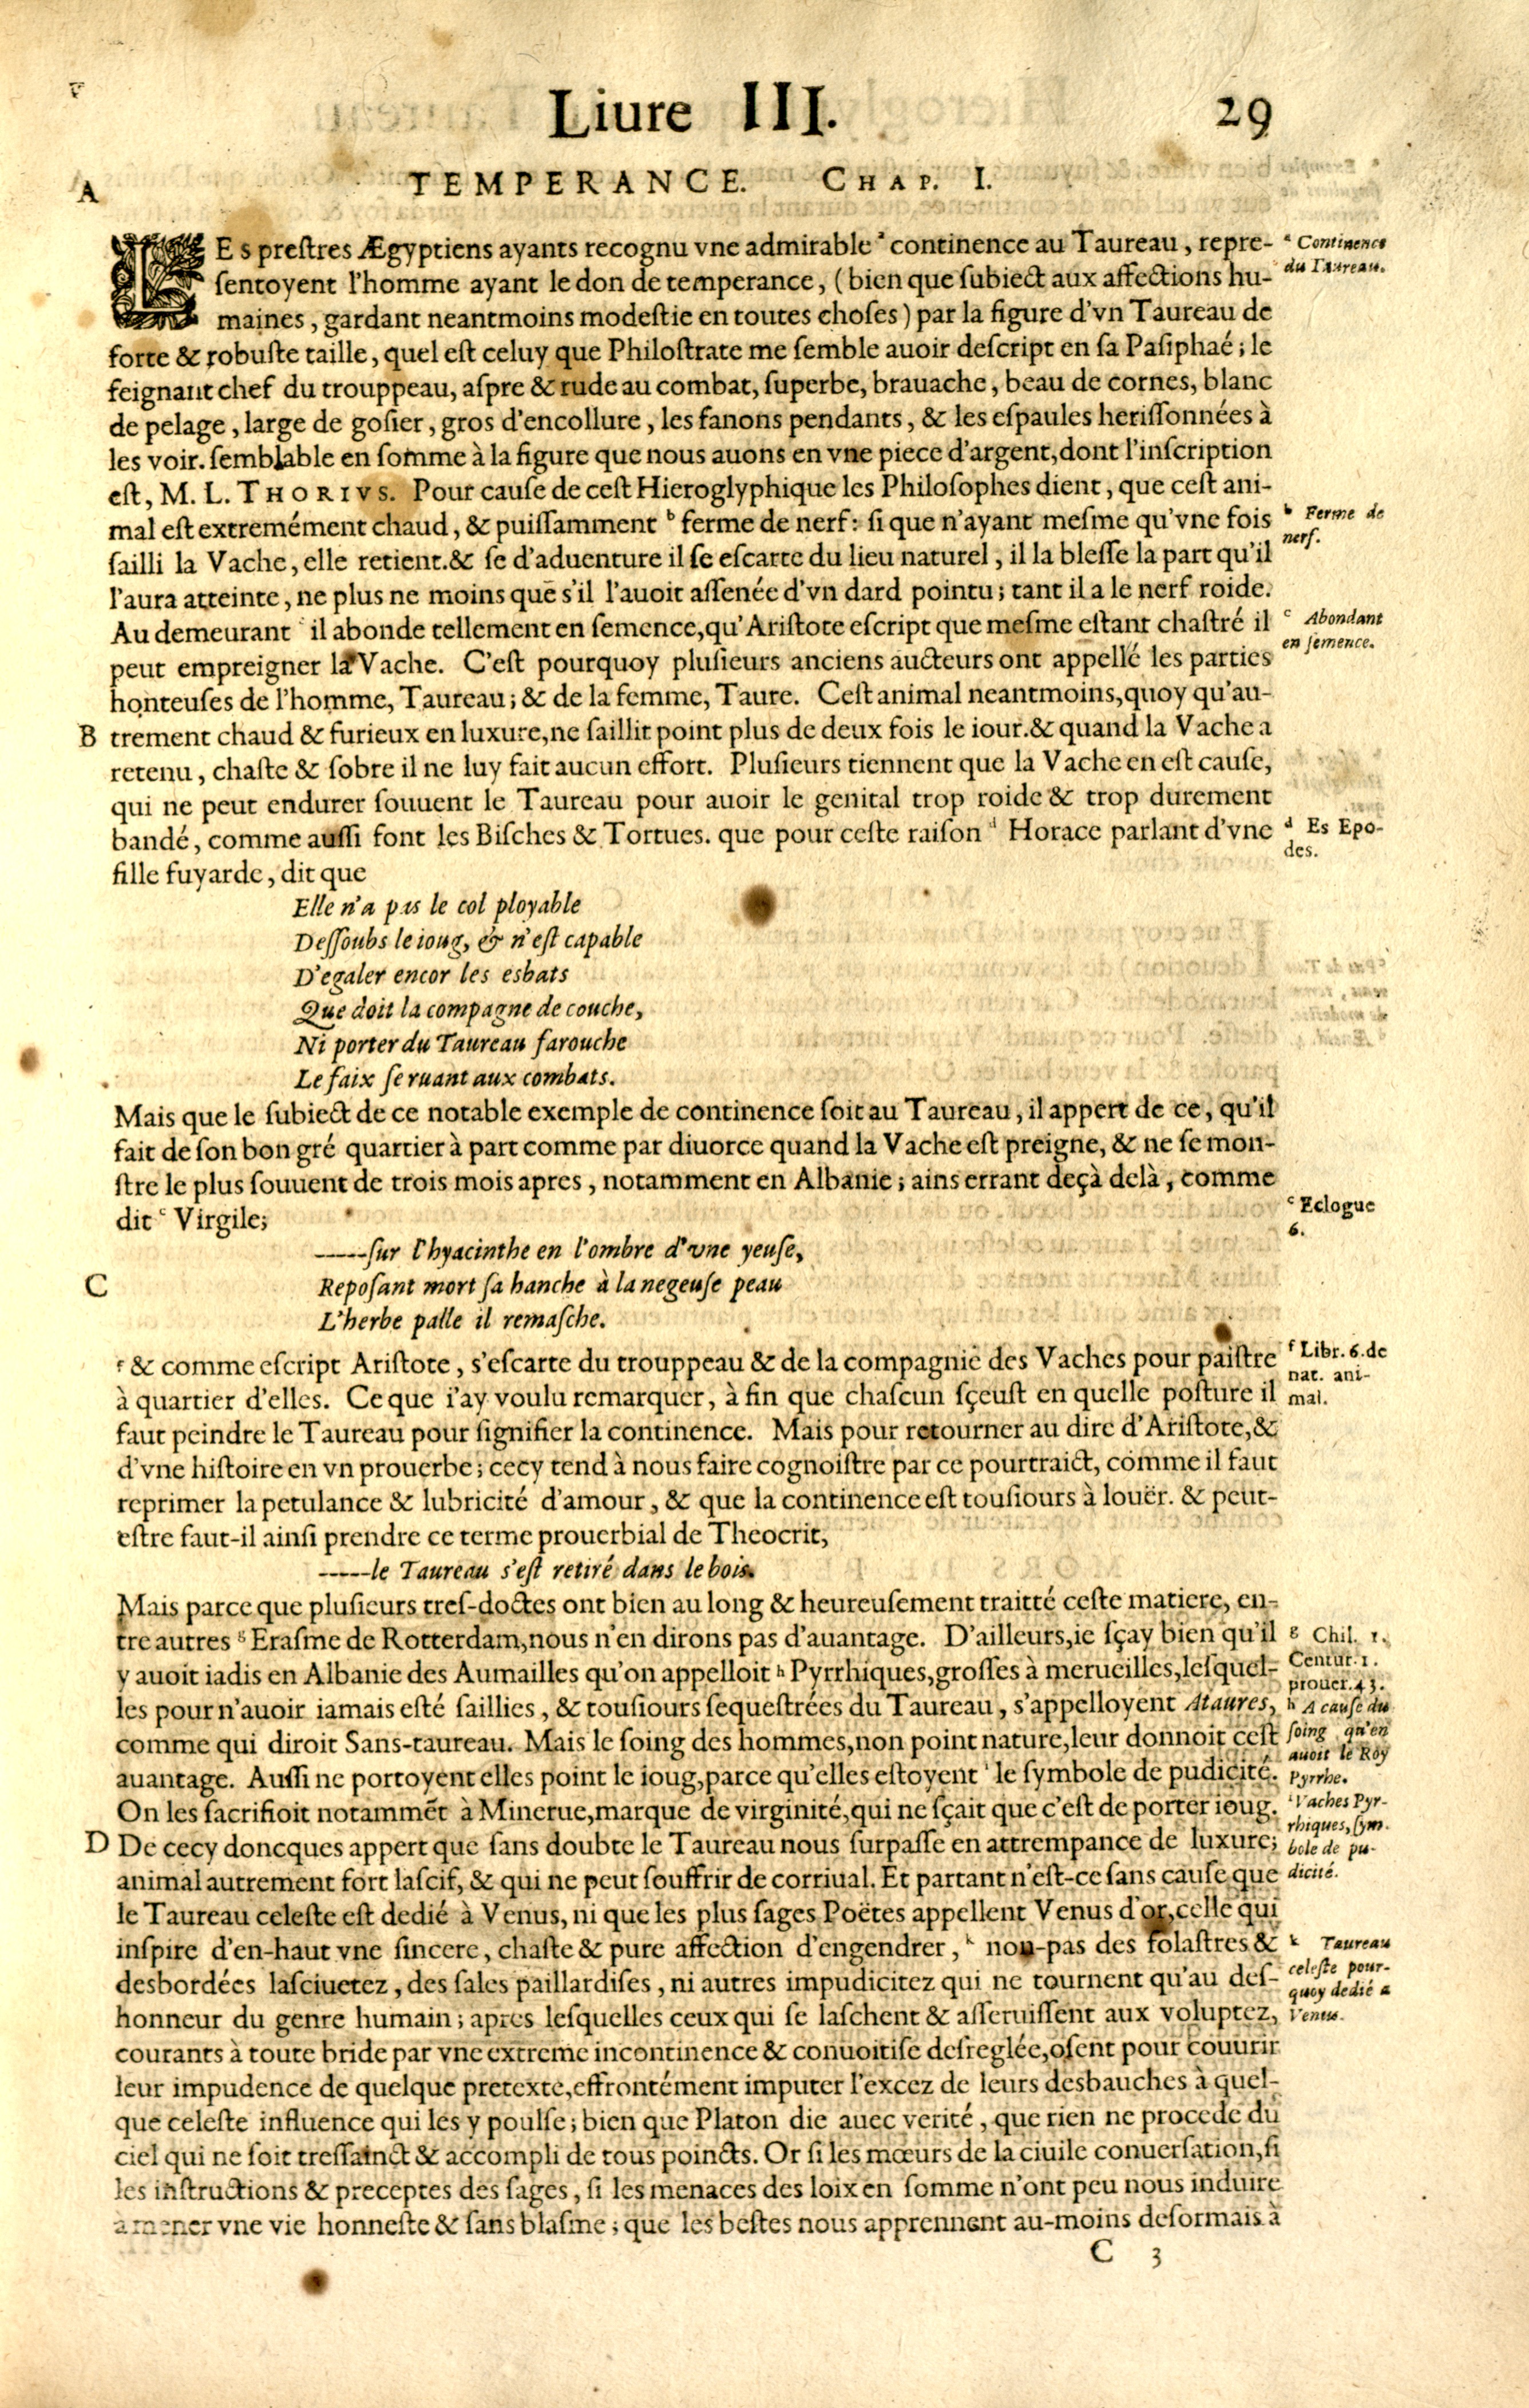 Liure III. 29
TEMPERANCE. CHAP. I.
A
LEs prestres Ægyptiens ayants recognu vne admirable ª continence au Taureau, repre-
ª Continence
du Taureau.
sentoyent l'homme ayant le don de temperance, (bien que subiect aux affections hu-
maines, gardant neantmoins modestie en toutes choses) par la figure d'vn Taureau de
forte & robuste taille, quel est celuy que Philostrate me semble auoir descript en sa Pasiphaé; le
feignant chef du trouppeau, aspre & rude au combat, superbe, brauache, beau de cornes, blanc
de pelage, large de gosier, gros d'encollure, les fanons pendants, & les espaules herissonnées à
les voir. semblable en somme à la figure que nous auons en vne piece d'argent, dont l'inscription
est, M. L. THORIVS. Pour cause de cest Hieroglyphique les Philosophes dient, que cest ani-
mal est extremément chaud, & puissamment ᵇ ferme de nerf: si que n'ayant mesme qu'vne fois
ᵇ Ferme de
nerf.
sailli la Vache, elle retient. & se d'aduenture il se escarte du lieu naturel, il la blesse la part qu'il
l'aura atteinte, ne plus ne moins que s'il l'auoit assenée d'vn dard pointu; tant il a le nerf roide.
Au demeurant ᶜ il abonde tellement en semence, qu'Aristote escript que mesme estant chastré il
ᶜ Abondant
en semence.
peut empreigner la Vache. C'est pourquoy plusieurs anciens aucteurs ont appellé les parties
honteuses de l'homme, Taureau; & de la femme, Taure. Cest animal neantmoins, quoy qu'au-
B trement chaud & furieux en luxure, ne saillit point plus de deux fois le iour. & quand la Vache a
retenu, chaste & sobre il ne luy fait aucun effort. Plusieurs tiennent que la Vache en est cause,
qui ne peut endurer souuent le Taureau pour auoir le genital trop roide & trop durement
bandé, comme aussi font les Bisches & Tortues. que pour ceste raison ᵈ Horace parlant d'vne
ᵈ Es Epo-
des.
fille fuyarde, dit que
Elle n'a pas le col ployable
Dessoubs le ioug, & n'est capable
D'egaler encor les esbats
Que doit la compagne de couche,
Ni porter du Taureau farouche
Le faix se ruant aux combats.
Mais que le subiect de ce notable exemple de continence soit au Taureau, il appert de ce, qu'il
fait de son bon gré quartier à part comme par diuorce quand la Vache est preigne, & ne se mon-
stre le plus souuent de trois mois apres, notamment en Albanie; ains errant deçà delà, comme
dit ᵉ Virgile;
ᵉ Eclogue
6.
-----sur l'hyacinthe en l'ombre d'vne yeuse,
C
Reposant mort sa hanche à la negeuse peau
L'herbe palle il remasche.
ᶠ & comme escript Aristote, s'escarte du trouppeau & de la compagnie des Vaches pour paistre
ᶠ Libr. 6. de
nat. ani-
mal.
à quartier d'elles. Ce que i'ay voulu remarquer, à fin que chascun sçeust en quelle posture il
faut peindre le Taureau pour signifier la continence. Mais pour retourner au dire d'Aristote, &
d'vne histoire en vn prouerbe; cecy tend à nous faire cognoistre par ce pourtraict, comme il faut
reprimer la petulance & lubricité d'amour, & que la continence est tousiours à louër. & peut-
estre faut-il ainsi prendre ce terme prouerbial de Theocrit,
-----le Taureau s'est retiré dans le bois.
Mais parce que plusieurs tres-doctes ont bien au long & heureusement traitté ceste matiere, en-
tre autres ᵍ Erasme de Rotterdam, nous n'en dirons pas d'auantage. D'ailleurs, ie sçay bien qu'il
ᵍ Chil. 1.
Centur. 1.
prouer. 43.
y auoit iadis en Albanie des Aumailles qu'on appelloit ʰ Pyrrhiques, grosses à merueilles, lesquel-
les pour n'auoir iamais esté saillies, & tousiours sequestrées du Taureau, s'appelloyent Ataures,
ʰ A cause du
soing qu'en
auoit le Roy
Pyrrhe.
comme qui diroit Sans-taureau. Mais le soing des hommes, non point nature, leur donnoit cest
auantage. Aussi ne portoyent elles point le ioug, parce qu'elles estoyent ⁱ le symbole de pudicité.
ⁱ Vaches Pyr-
rhiques, sym-
bole de pu-
dicité.
On les sacrifioit notammẽt à Minerue, marque de virginité, qui ne sçait que c'est de porter ioug.
D De cecy doncques appert que sans doubte le Taureau nous surpasse en attrempance de luxure;
animal autrement fort lascif, & qui ne peut souffrir de corriual. Et partant n'est-ce sans cause que
le Taureau celeste est dedié à Venus, ni que les plus sages Poëtes appellent Venus d'or, celle qui
inspire d'en-haut vne sincere, chaste & pure affection d'engendrer, ᵏ non-pas des folastres &
ᵏ Taureau
celeste pour-
quoy dedié a
Venus.
desbordées lasciuetez, des sales paillardises, ni autres impudicitez qui ne tournent qu'au des-
honneur du genre humain; apres lesquelles ceux qui se laschent & asseruissent aux voluptez,
courants à toute bride par vne extreme incontinence & conuoitise desreglée, osent pour couurir
leur impudence de quelque pretexte, effrontément imputer l'excez de leurs desbauches à quel-
que celeste influence qui les y poulse; bien que Platon die auec verité, que rien ne procede du
ciel qui ne soit tressainct & accompli de tous poincts. Or si les mœurs de la ciuile conuersation, si
les instructions & preceptes des sages, si les menaces des loix en somme n'ont peu nous induire
a mener vne vie honneste & sans blasme; que les bestes nous apprennent au-moins desormais à
C 3